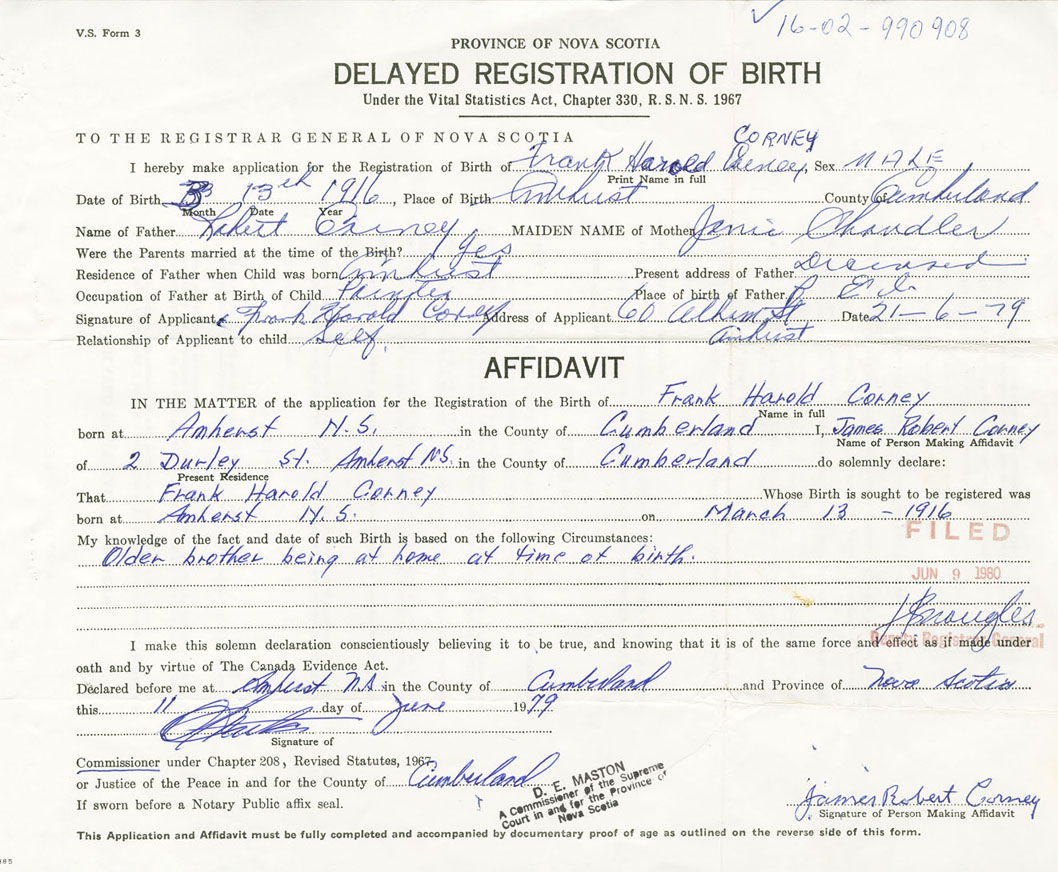 V.S. Form 3
16-02-990908
PROVINCE OF NOVA SCOTIA
DELAYED REGISTRATION OF BIRTH
Under the Vital Statistics Act, Chapter 330, R.S.N.S. 1967
TO THE REGISTRAR GENERAL OF NOVA SCOTIA
CORNEY
I hereby make application for the Registration of Birth of Frank Harold Corney, Sex MALE
Print Name in full
Date of Birth 3 13th 1916, Place of Birth Amherst County of Cumberland
Month Date Year
Name of Father Robert Corney MAIDEN NAME of Mother Janie Chandler
Were the Parents married at the time of the Birth? Yes
Residence of Father when Child was born Amherst Present address of Father Deceased
Occupation of Father at Birth of Child Painter Place of birth of Father P.E.I.
Signature of Applicant Frank Harold Corney Address of Applicant 60 St Date 21-6-79
Relationship of Applicant to child self. Amherst
AFFIDAVIT
IN THE MATTER of the application for the Registration of the Birth of Frank Harold Corney
Name in full
born at Amherst N.S. in the County of Cumberland I, James Robert Corney
Name of Person Making Affidavit
of 2 Durley St. Amherst NS. in the County of Cumberland do solemnly declare:
Present Residence
That Frank Harold Corney Whose Birth is sought to be registered was
born at Amherst N.S. on March 13 - 1916
FILED
My knowledge of the fact and date of such Birth is based on the following Circumstances:
Older brother being at home at time of birth.
JUN 9 1980
Deputy Registrar General
I make this solemn declaration conscientiously believing it to be true, and knowing that it is of the same force and effect as if made under
oath and by virtue of The Canada Evidence Act.
Declared before me at Amherst N.S. in the County of Cumberland and Province of Nova Scotia
this 11 day of June 1979
Signature of
Commissioner under Chapter 208, Revised Statutes, 1967
or Justice of the Peace in and for the County of Cumberland
If sworn before a Notary Public affix seal.
D. E. MASTON
A Commissioner of the Supreme
Court in and for the Province of
Nova Scotia
James Robert Corney
Signature of Person Making Affidavit
This Application and Affidavit must be fully completed and accompanied by documentary proof of age as outlined on the reverse side of this form.